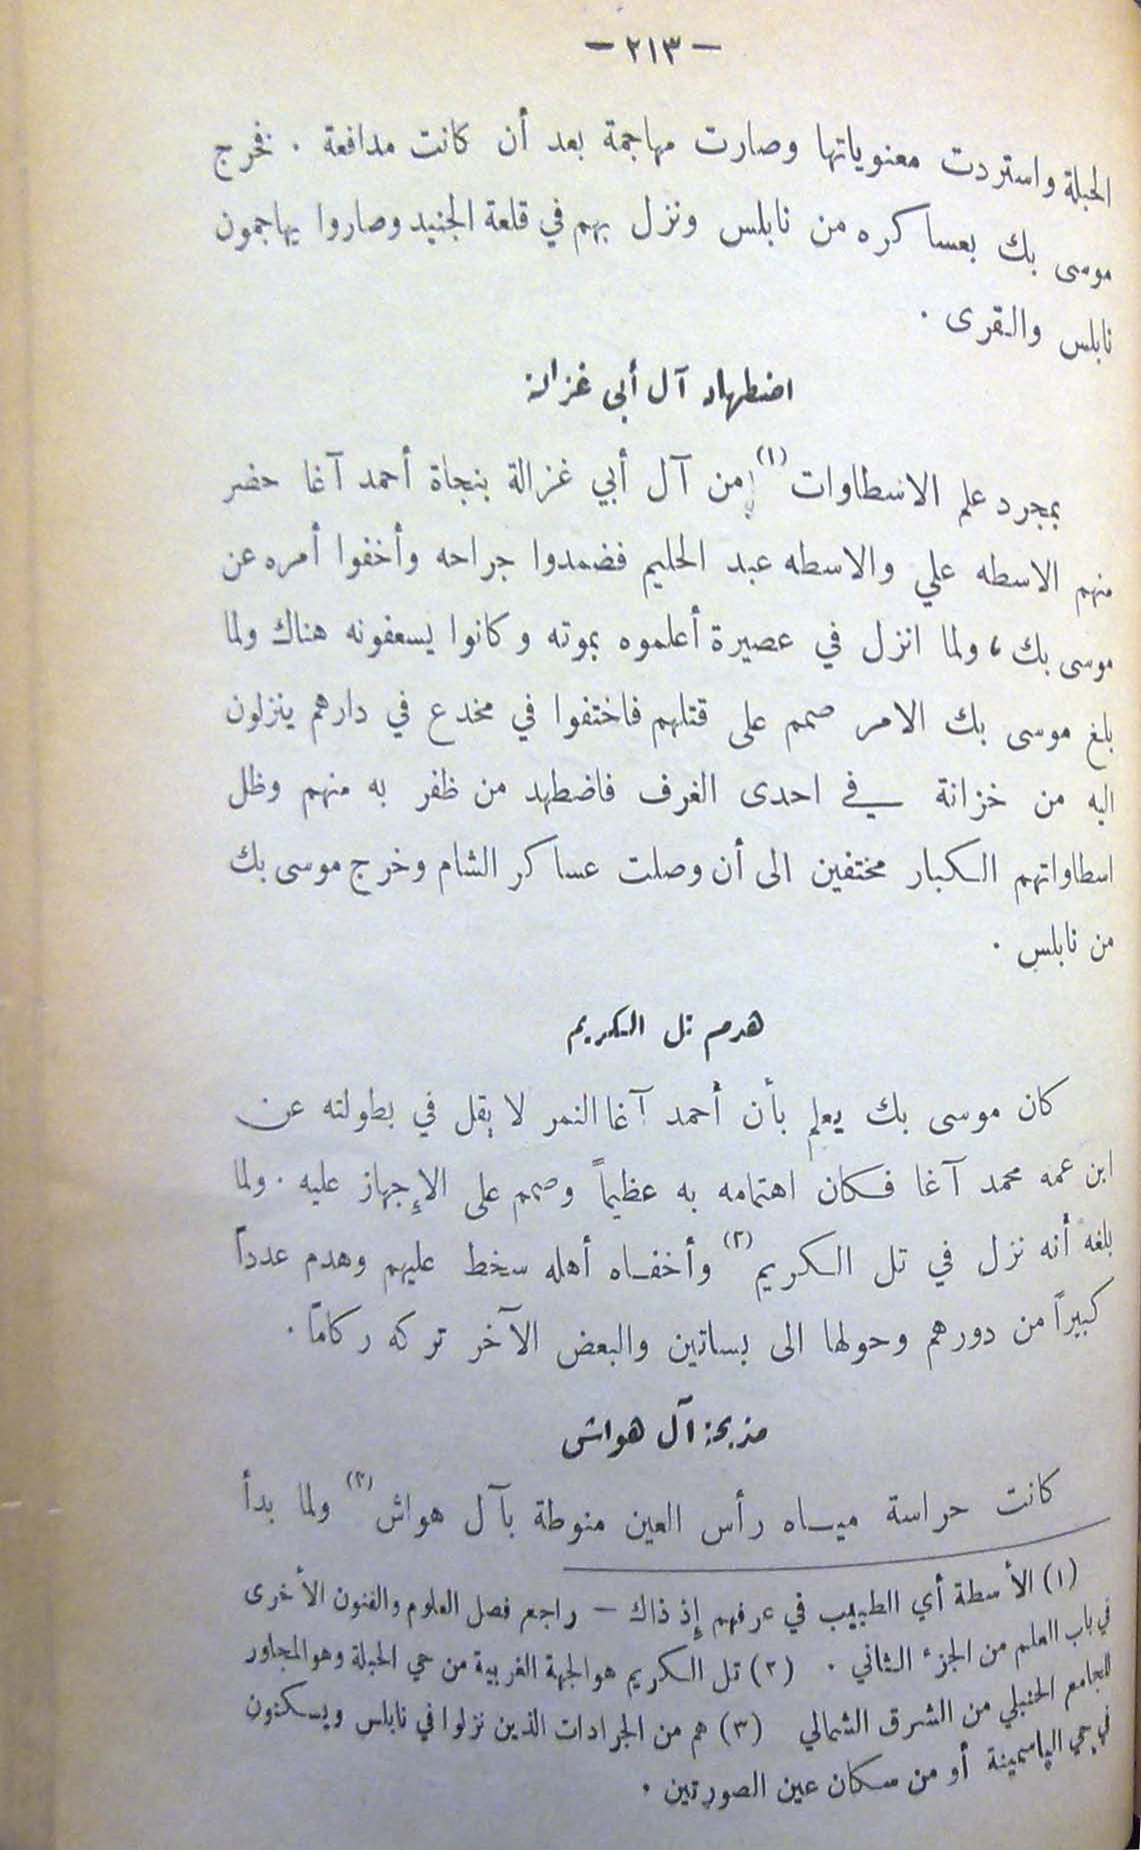 — ٢١٣ —
الحبلة واستردت معنوياتها وصارت مهاجمة بعد أن كانت مدافعة . فخرج
موسى بك بعساكره من نابلس ونزل بهم في قلعة الجنيد وصاروا يهاجمون
نابلس والقرى .
اضطهاد آل أبي غزالة
بمجرد علم الاسطاوات (١) من آل أبي غزالة بنجاة أحمد آغا حضر
منهم الاسطه علي والاسطه عبد الحليم فضمدوا جراحه وأخفوا أمره عن
موسى بك ، ولما انزل في عصيرة أعلموه بموته وكانوا يسعفونه هناك ولما
بلغ موسى بك الامر صمم على قتلهم فاختفوا في مخدع في دارهم ينزلون
اليه من خزانة في احدى الغرف فاضطهد من ظفر به منهم وظل
اسطاواتهم الكبار مختفين الى أن وصلت عساكر الشام وخرج موسى بك
من نابلس .
هدم تل الكريم
كان موسى بك يعلم بأن أحمد آغا النمر لا يقل في بطولته عن
ابن عمه محمد آغا فكان اهتمامه به عظيماً وصمم على الإجهاز عليه . ولما
بلغه أنه نزل في تل الكريم (٢) وأخفاه أهله سخط عليهم وهدم عدداً
كبيراً من دورهم وحولها الى بساتين والبعض الآخر تركه ركاماً .
مذبحة آل هواش
كانت حراسة مياه رأس العين منوطة بآل هواش (٣) ولما بدأ
(١) الأسطة أي الطبيب في عرفهم إذ ذاك — راجع فصل العلوم والفنون الأخرى
في باب العلم من الجزء الثاني . (٢) تل الكريم هو الجهة الغربية من حي الحبلة وهو المجاور
للجامع الحنبلي من الشرق الشمالي (٣) هم من الجرادات الذين نزلوا في نابلس ويسكنون
في حي الياسمينة أو من سكان عين الصورتين .